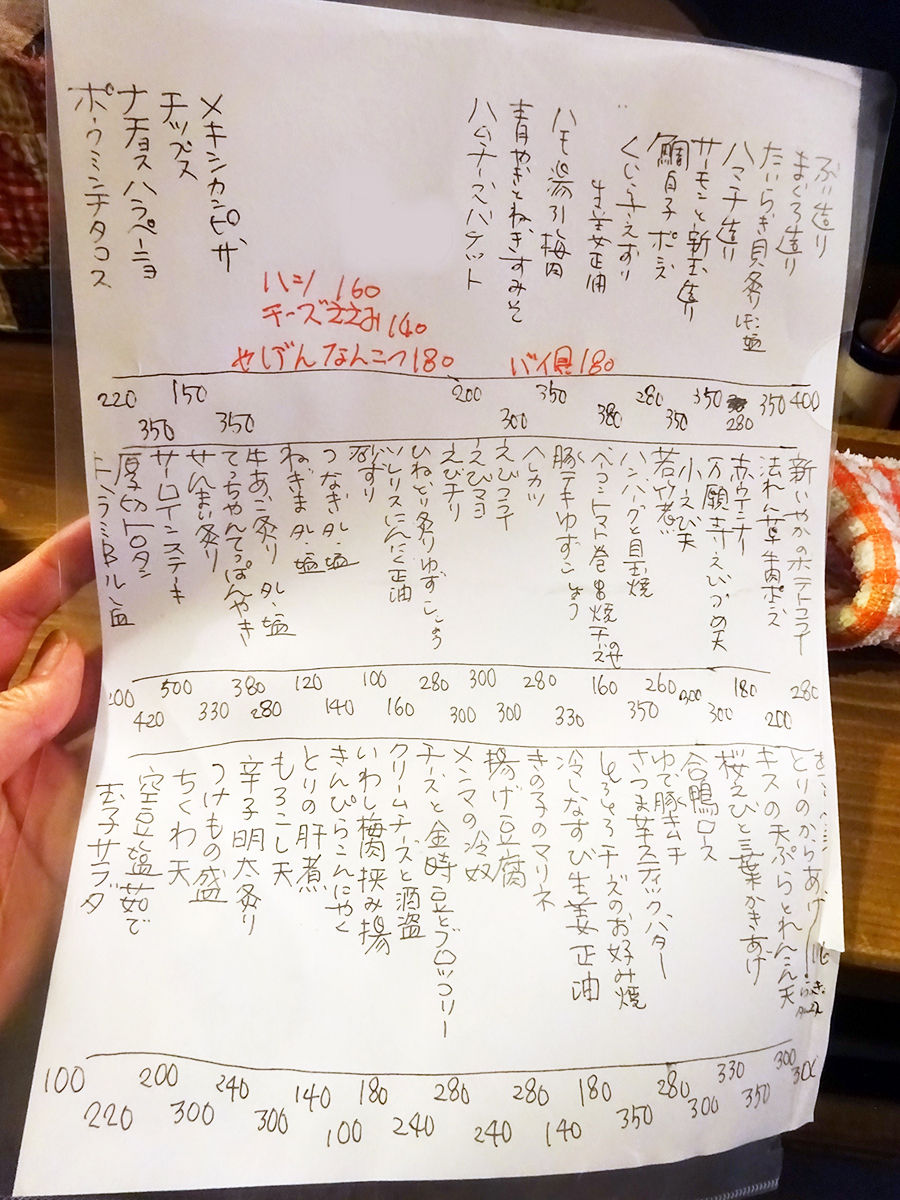 ぶり造り
まぐろ造り
たいらぎ貝炙りレモン塩
ハマチ造り
サーモンと新玉造り
鯛白子ポン酢
くじらさえずり
生姜正油
ハモ湯引し梅肉
青やぎとねぎすみそ
ハムチーズバケット
メキシカンピザ
チップス
ナチョスハラペーニョ
ポークミンチタコス
ハシ 160
チーズささみ 140
やげんなんこつ 180
バイ貝 180
400
350
280
350
350
280
380
350
300
200
350
150
350
220
新いかのポテトフライ
ほれん草牛肉ポン酢
赤ウインナー
万願寺えびづめ天
小えび天
若竹煮
ハンバーグと目玉焼
ベーコントマト巻串焼チーズのせ
豚テキゆずこしょう
ヘレカツ
えびフライ
えびマヨ
えびチリ
ひねどり炙りゆずこしょう
ハレリスにんにく正油
砂ずり
つなぎタレ・塩
ねぎまタレ・塩
牛あご炙りタレ・塩
てっちゃんてっぽんやき
せんまい炙り
サーロインステーキ
厚切トロタン
トントラミBル塩
280
200
180
300
300
260
350
160
330
280
300
300
300
280
160
100
140
120
280
380
330
500
420
とりのからあげ
キスの天ぷらとれんこん天
桜えびと三葉かきあげ
合鴨ロース
ゆで豚キムチ
さつま芋スティックバター
とろとろチーズのお好み焼
冷しなすび生姜正油
きの子のマリネ
揚げ豆腐
メンマの冷奴
チーズと金時豆とブロッコリー
クリームチーズと酒盗
いわし梅肉挟み揚
きんぴらこんにゃく
とりの肝煮
もろこし天
辛子明太炙り
つけもの盛
ちくわ天
空豆塩茹で
玉子サラダ
300
300
350
330
300
280
350
180
140
280
240
280
240
180
100
140
300
240
300
200
220
100